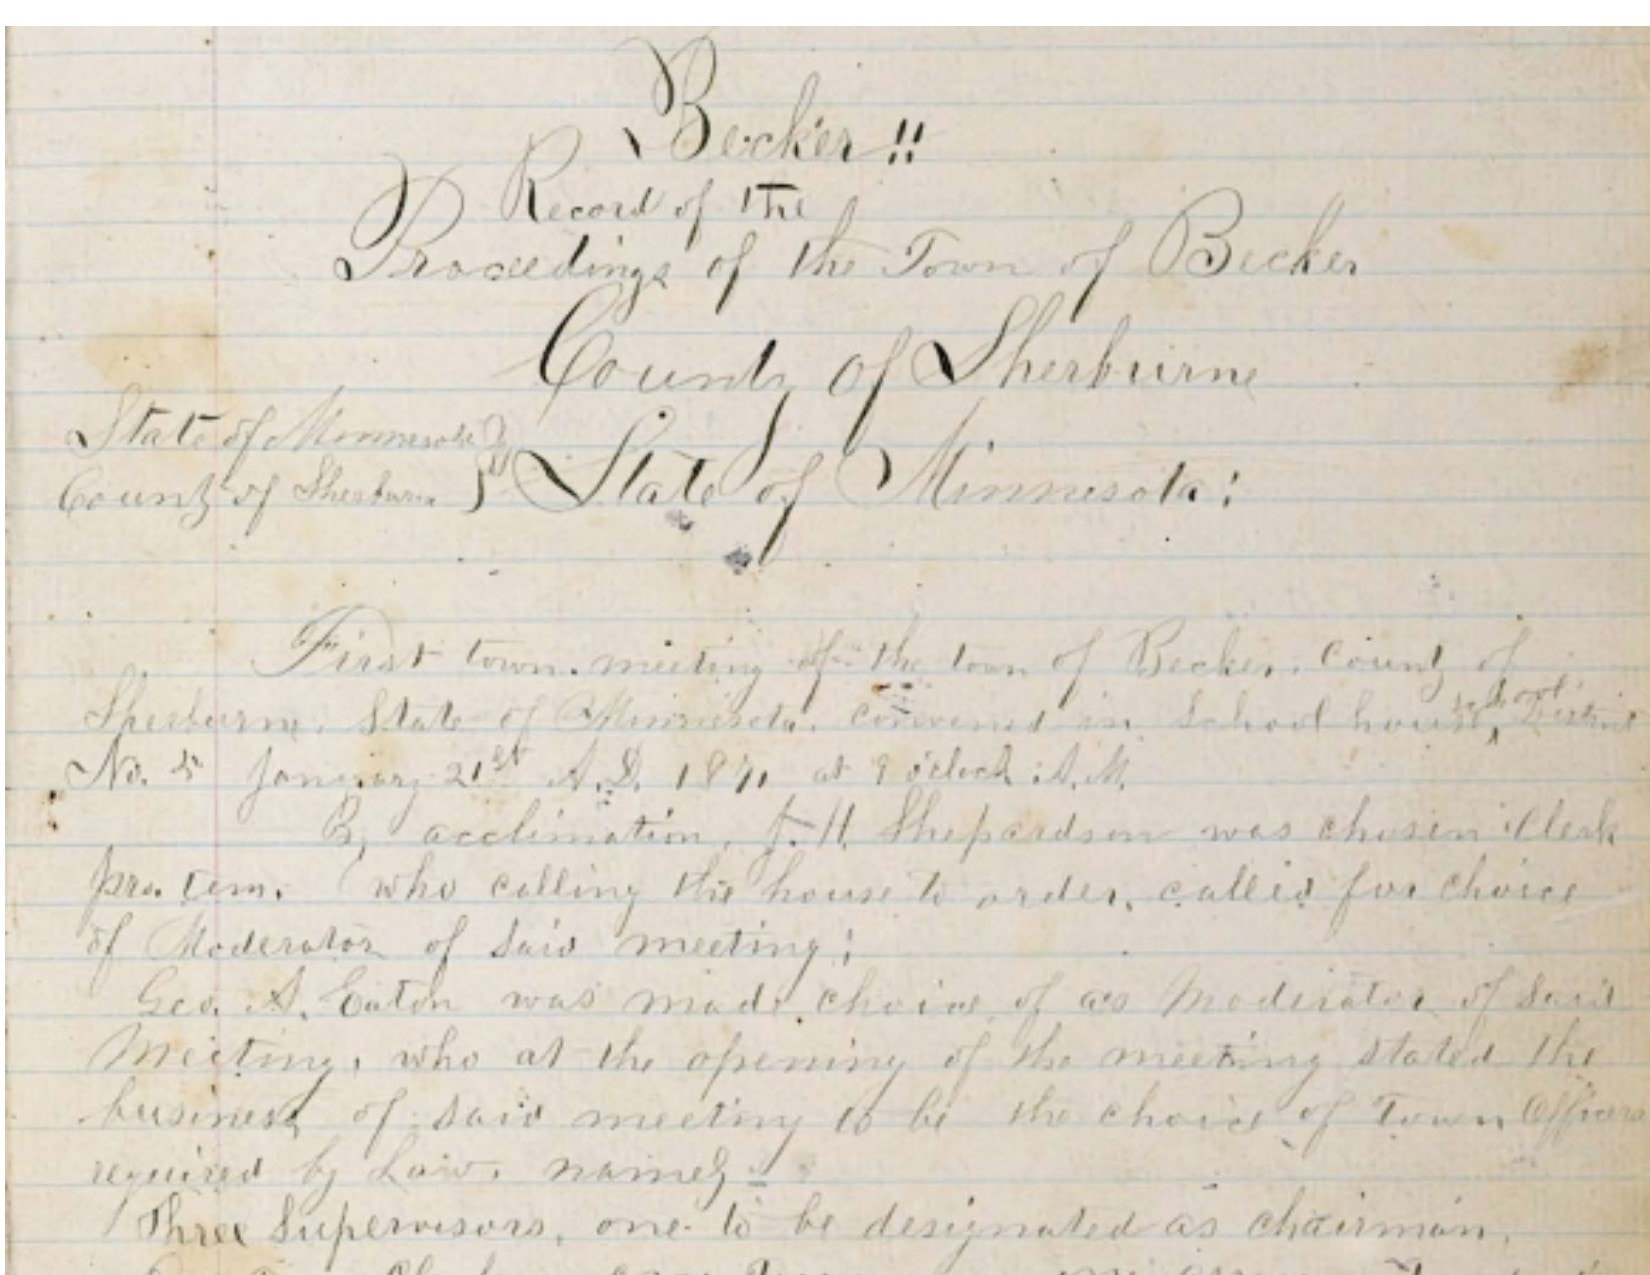 Becker!!
Record of the
Procedings of the Town of Becker
County of Sherburne
State of Minnesota
County of Sherburne } State of Minnesota:
First town meeting of the town of Becker. County of
Sherburne. State of Minnesota. convened in School house, school District
No. 5 January 21st A.D. 1871 at 9 o'clock A.M.
By acclimation, J. H. Shepardson was chosen Clerk
pro. tem. who calling the house to order, called for choice
of Moderator of said meeting;
Geo. A. Eaton was made choice of as Moderator of said
Meeting, who at the opening of the meeting stated the
business of said meeting to be the choice of Town Officers
required by Law. namely
Three Supervisors, one to be designated as chairman,